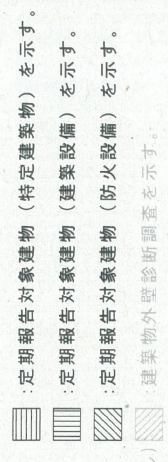 :定期報告対象建物（特定建築物）を示す。
:定期報告対象建物（建築設備）を示す。
:定期報告対象建物（防火設備）を示す。
:建築物外壁診断調査を示す。